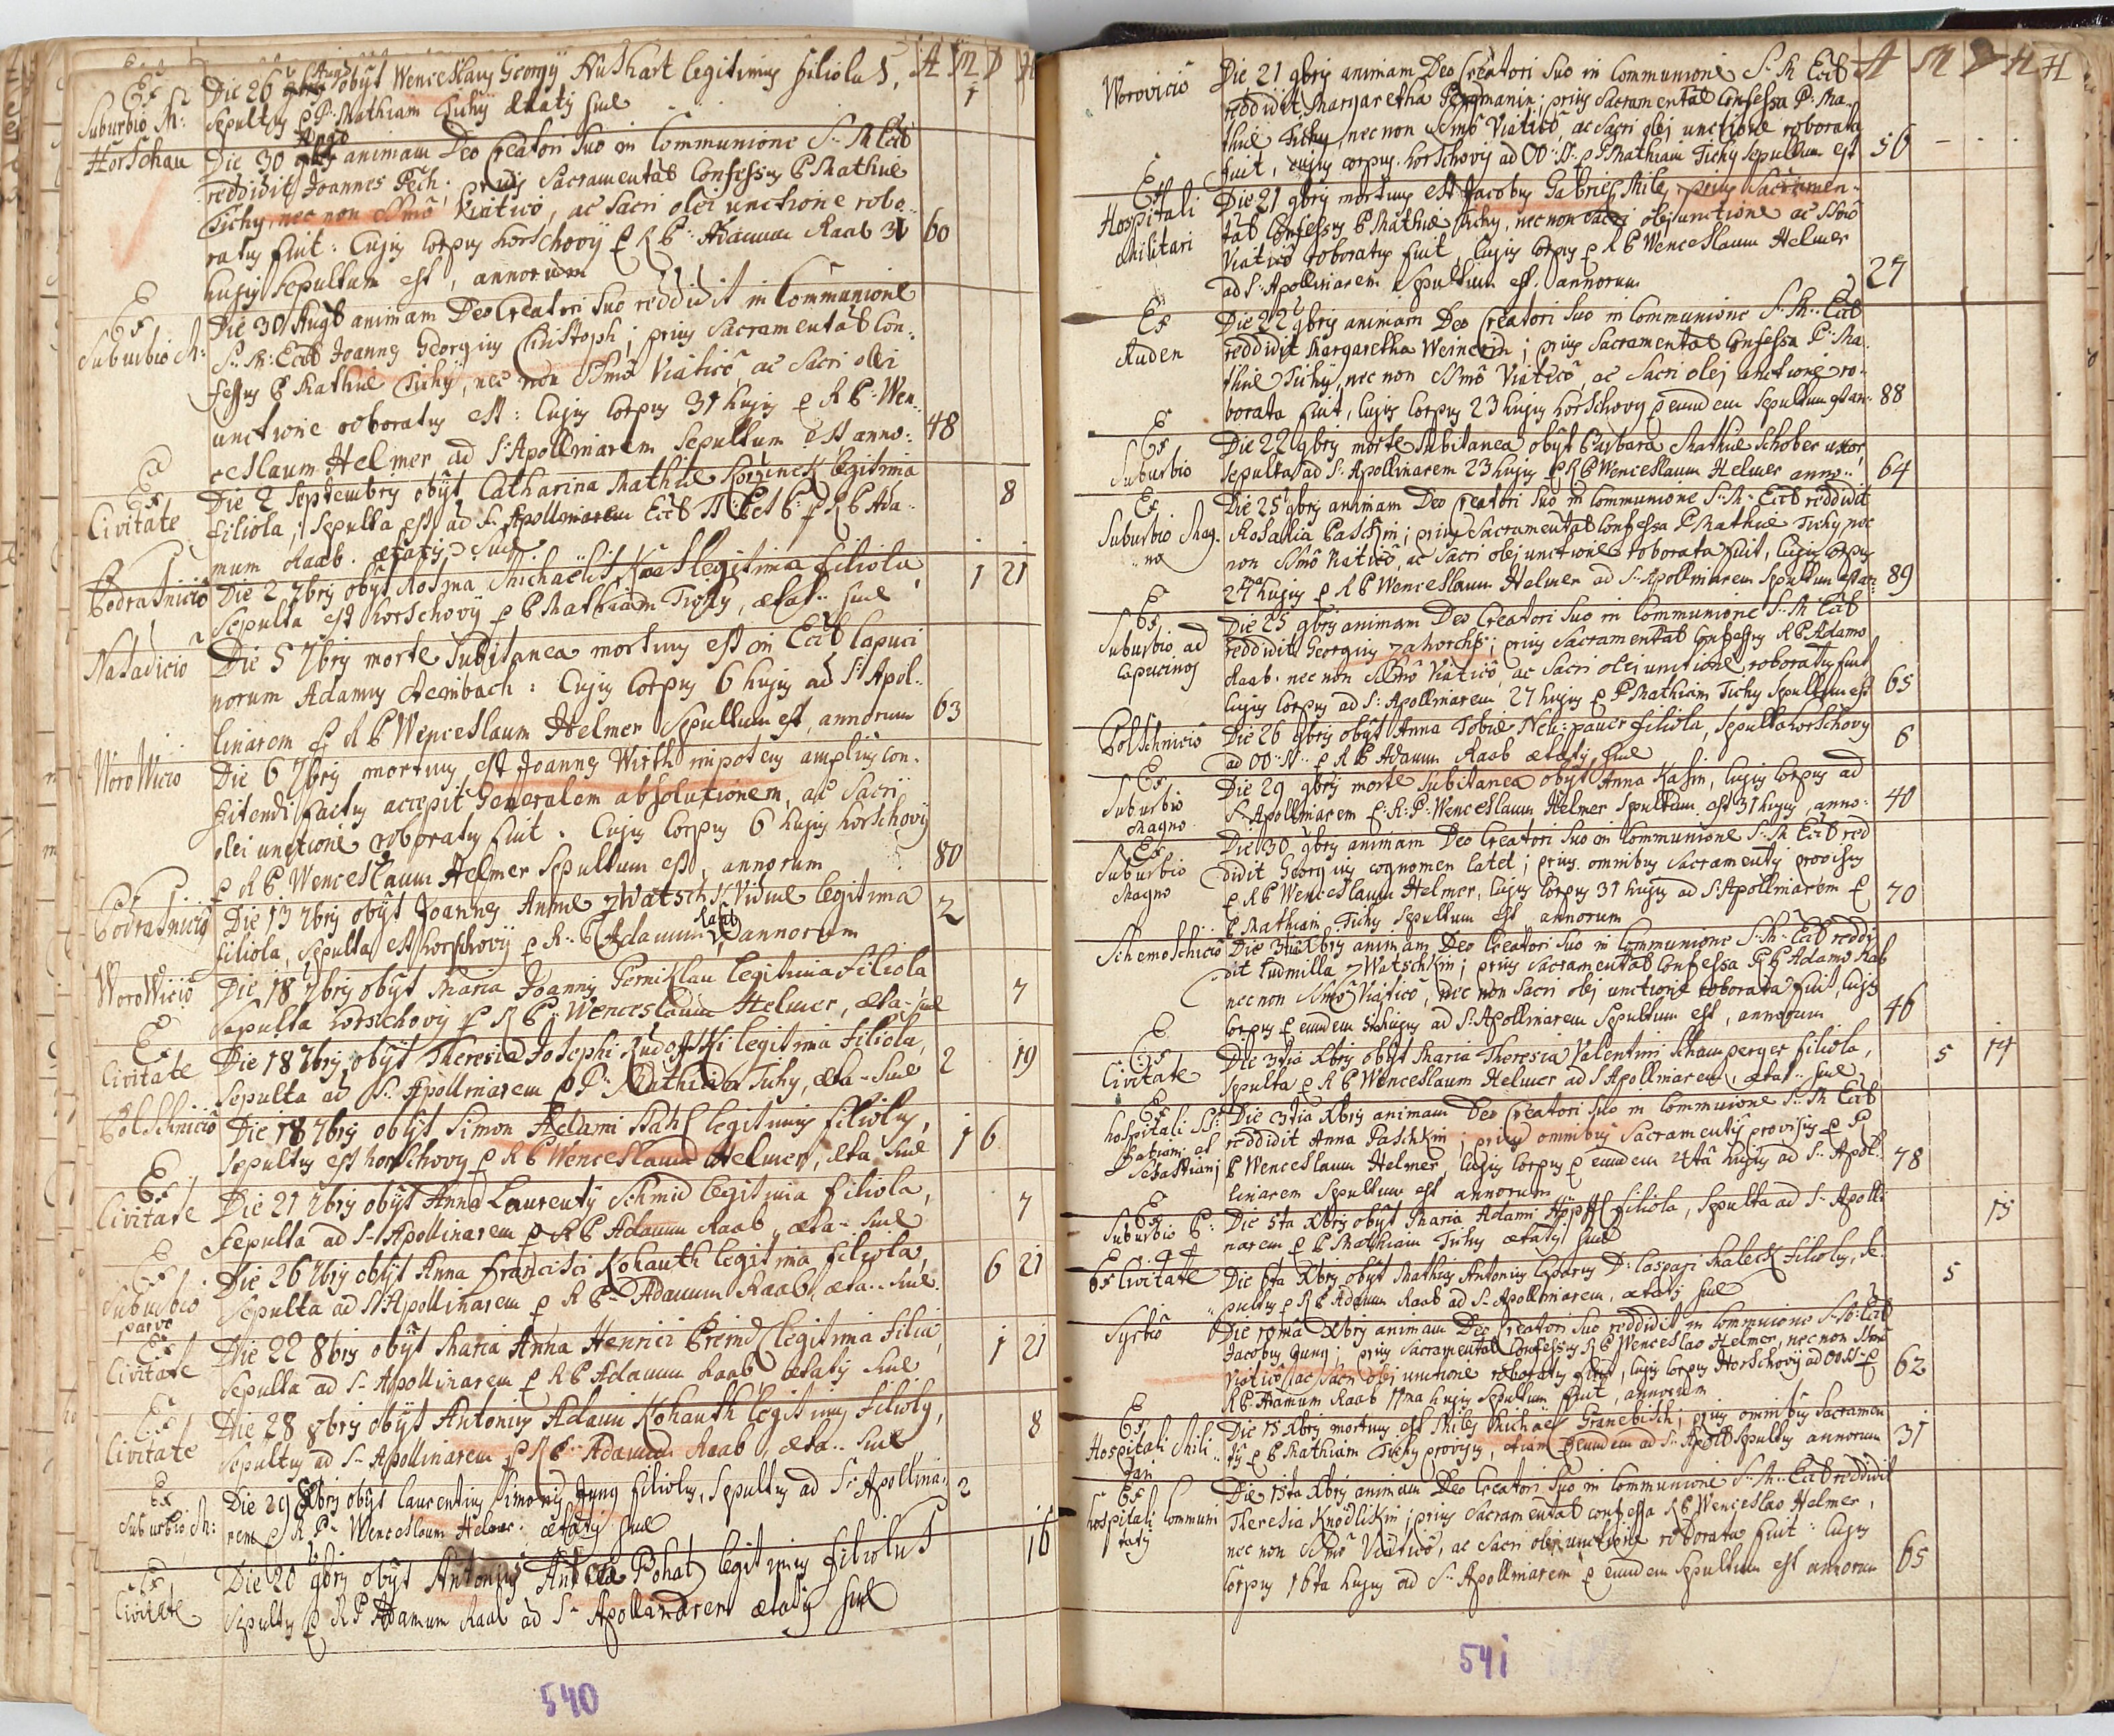 A M D H
Ex Suburbio M: Die 26 Augs obijt Wenceslaus Georgij Hushart legitimus filiolus,
Sepultus P P: Mathiam Tichij ætatis suæ 1
Horschau Die 30 Augs animam Deo Creatori suo in Communione S: M: Eccl
reddidit Joannes Pech: prius Sacramental Confessus P Mathiæ
Tichij, nec non SSmo Viatico, ac Sacri olei unctione robo-
ratus fuit: Cujus Corpus Horschovij P R P: Adamum Raab 31 60
hujus Sepultum est, annorum
Ex Suburbio M: Die 30 Augs animam Deo Creatori suo reddidit in Communione
S: M: Eccl Joannes Georgius Christoph; prius Sacramental Con-
fessus P Mathiæ Tichij, nec non SSmo Viatico, ac Sacri olei
unctione roboratus est: Cujus Corpus 31 hujus P R P: Wen-
ceslaum Helmer ad S: Apollinarem Sepultum est anno: 48
Ex Civitate Die 2 Septembris obijt Catharina Mathiæ Korzinek legitima
filiola, Sepulta est ad S: Apollinarem P R P Ada- 8
mum Raab. ætatis suæ
Podrasnicio Die 2 7bris obijt Rosina legitima filiola 1 21
Sepulta est Horschovij P P Mathiam Tichij, ætat: suæ
Natadicio Die 5 7bris morte Subitanea mortuus est in Eccl Capuci
norum Adamus Steinbach: Cujus Corpus 6 hujus ad S: Apol-
linarem P R P Wenceslaum Helmer Sepultum est, annorum 63
Worowicio Die 6 7bris mortuus est Joannes Wirth impotens amplius con-
fitendi factus accepit Generalem absolutionem, ac Sacri
olei unctione roboratus fuit. Cujus Corpus 6 hujus Horschovij
P R P Wenceslaum Helmer Sepultum est, annorum 80
Podrasnicio Die 13 7bris obijt Joannes Annæ Viduæ legitima 2
filiola, Sepulta est Horschovij P R: P Adamum Raab annorum
Worowicio Die 18 7bris obijt Maria Joannis legitima filiola 7
Sepulta Horschovij P R P Wenceslaum Helmer, æta- suæ
Ex Civitate Die 18 7bris obijt Theresia Josephi legitima filiola, 2 19
Sepulta ad S: Apollinarem P P: Mathiam Tichy, æta- suæ
Polschnicio Die 18 7bris obijt Simon Adami Stahl legitimus filiolus, 1 6
Sepultus est Horschovij P R P Wenceslaum Helmer, æta- suæ
Ex Civitate Die 21 7bris obijt Anna Laurentij Schmid legitima filiola, 7
Sepulta ad S: Apollinarem P R P Adamum Raab, æta- suæ
Ex Suburbio parvo Die 26 7bris obijt Anna Francisci Kohauth legitima filiola, 6 21
Sepulta ad S: Apollinarem P R P Adamum Raab, æta: suæ
Ex Civitate Die 22 8bris obijt Maria Anna Henrici legitima filia, 1 21
Sepulta ad S: Apollinarem P R P Adamum Raab, ætatis suæ
Ex Civitate Die 28 8bris obijt Antonius Adami Kohauth legitimus filiolus, 8
Sepultus ad S: Apollinarem P R P: Adamum Raab, æta: suæ
Ex Suburbio M: Die 29 8bris obijt Laurentius Simonis Jung filiolus, Sepultus ad S: Apollina- 2
rem P R P: Wenceslaum Helmer. ætatis suæ
Ex Civitate Die 20 9bris obijt Antonius Pohat legitimus filiolus 16
Sepultus P R P Adamum Raab ad S: Apollinarem ætatis suæ
540
A M D H H
Worovicio Die 21 9bris animam Deo Creatori suo in Communione S: M: Eccl
reddidit Margaretha; prius Sacramental Confessa P: Ma-
thiæ Tichy, nec non SSmo Viatico, ac Sacri olej unctione roborata
fuit, cujus corpus Horschovij ad OO: SS: P P Mathiam Tichy Sepultum est 50
Ex Hospitali Militari Die 21 9bris mortuus est Jacobus Gabriel Miles, prius Sacramen-
tal Confessus P Mathiæ Tichy, nec non Sacri olej unctione ac SSmo
Viatico roboratus fuit, Cujus Corpus P R P Wenceslaum Helmer
ad S: Apollinarem Sepultum est. annorum 27
Ex Auden Die 22 9bris animam Deo Creatori suo in Communione S: M: Eccl
reddidit Margaretha; prius Sacramental Confessa P: Ma-
thiæ Tichij, nec non SSmo Viatico, ac Sacri olej unctione ro-
borata fuit, Cujus Corpus 23 hujus Horschovij P eundem Sepultum est an: 88
Ex Suburbio Die 22 9bris morte Subitanea obijt Barbara Mathiæ Schober uxor,
Sepulta ad S: Apollinarem 23 hujus P R P Wenceslaum Helmer anno: 64
Ex Suburbio Mag-no Die 25 9bris animam Deo Creatori suo in Communione S: M: Eccl reddidit
Rosalia Paschkin; prius Sacramental Confessa P Mathiæ Tichy nec
non SSmo Viatico, ac Sacri olej unctione roborata fuit, Cujus Corpus
27 hujus P R P Wenceslaum Helmer ad S: Apollinarem Sepultum est an: 89
Ex Suburbio ad Capucinos Die 25 9bris animam Deo Creatori suo in Communione S: M: Eccl
reddidit Georgius; prius Sacramental Confessus R P Adamo
Raab. nec non SSmo Viatico, ac Sacri olej unctione roboratus fuit
Cujus Corpus ad S: Apollinarem 27 hujus P P Mathiam Tichy Sepultum est 65
Polschnicio Die 26 9bris obijt Anna Tobiæ Neu-pauer filiola, Sepulta Horschovij 6
ad OO: SS: P R P Adamum Raab ætatis suæ
Ex Suburbio Magno Die 29 9bris morte Subitanea obijt Anna, Cujus Corpus ad
S: Apollinarem P: R: P: Wenceslaum Helmer Sepultum est 31 hujus, anno: 40
Ex Suburbio Magno Die 30 9bris animam Deo Creatori suo in Communione S: M: Eccl red
didit Georgius cognomen latet; prius omnibus Sacramentis provisus
P R P Wenceslaum Helmer, Cujus Corpus 31 hujus ad S: Apollinarem P 70
P Mathiam Tichy Sepultum est annorum
Schemoschicio Die 3tia Xbris animam Deo Creatori suo in Communione S: M: Eccl reddi
dit Ludmilla; prius Sacramental Confessa R P Adamo Rab
nec non SSmo Viatico, nec non Sacri olej unctione roborata fuit, Cujus
Corpus P eundem hujus ad S: Apollinarem Sepultum est, annorum 46
Ex Civitate Die 3tia Xbris obijt Maria Theresia Valentini Schamperger filiola, 5 14
Sepulta P R P Wenceslaum Helmer ad S Apollinarem, ætat: suæ
Ex Hospitali SS: Fabiani et Sebastiani Die 3tia Xbris animam Deo Creatori suo in Communione S: M: Eccl
reddidit Anna Paschkin; prius omnibus Sacramentis provisus P R
P Wenceslaum Helmer, Cujus Corpus P eundem 4ta hujus ad S: Apol- 78
linarem Sepultum est annorum
Ex Suburbio P: Die 5ta Xbris obijt Maria Adami filiola, Sepulta ad S: Apolli 15
narem P P Mathiam Tichy ætatis suæ
Ex Civitate Die 6ta Xbris obijt Mathias Antonius Caspari filiolus, Se- 5
pultus P R P Adamum Raab ad S: Apollinarem, ætatis suæ
Syrbio Die 10ma Xbris animam Deo Creatori suo reddidit in Communione S: M: Eccl
Jacobus Gung; prius Sacramental Confessus R P Wenceslao Helmer, nec non SSmo
Viatico, ac Sacri olej unctione roboratus fuit, Cujus Corpus Horschovij ad OO SS: P
R P Adamum Raab hujus Sepultum fuit, annorum 62
Ex Hospitali Mili-tari Die 15 Xbris mortuus est Miles Michael Granebitsch; prius omnibus Sacramen
tis P P Mathiam Tichy provisus, etiam P eundem ad S: Apoll Sepultus annorum 31
Ex Hospitali Communi-tatis Die 15ta Xbris animam Deo Creatori suo in Communione S: M: Eccl reddidit
Theresia Knödlikin; prius Sacramental confessa R P Wenceslao Helmer,
nec non SSmo Viatico, ac Sacri olej unctione roborata fuit: Cujus
Corpus 16ta hujus ad S: Apollinarem P eundem Sepultum est annorum 65
541